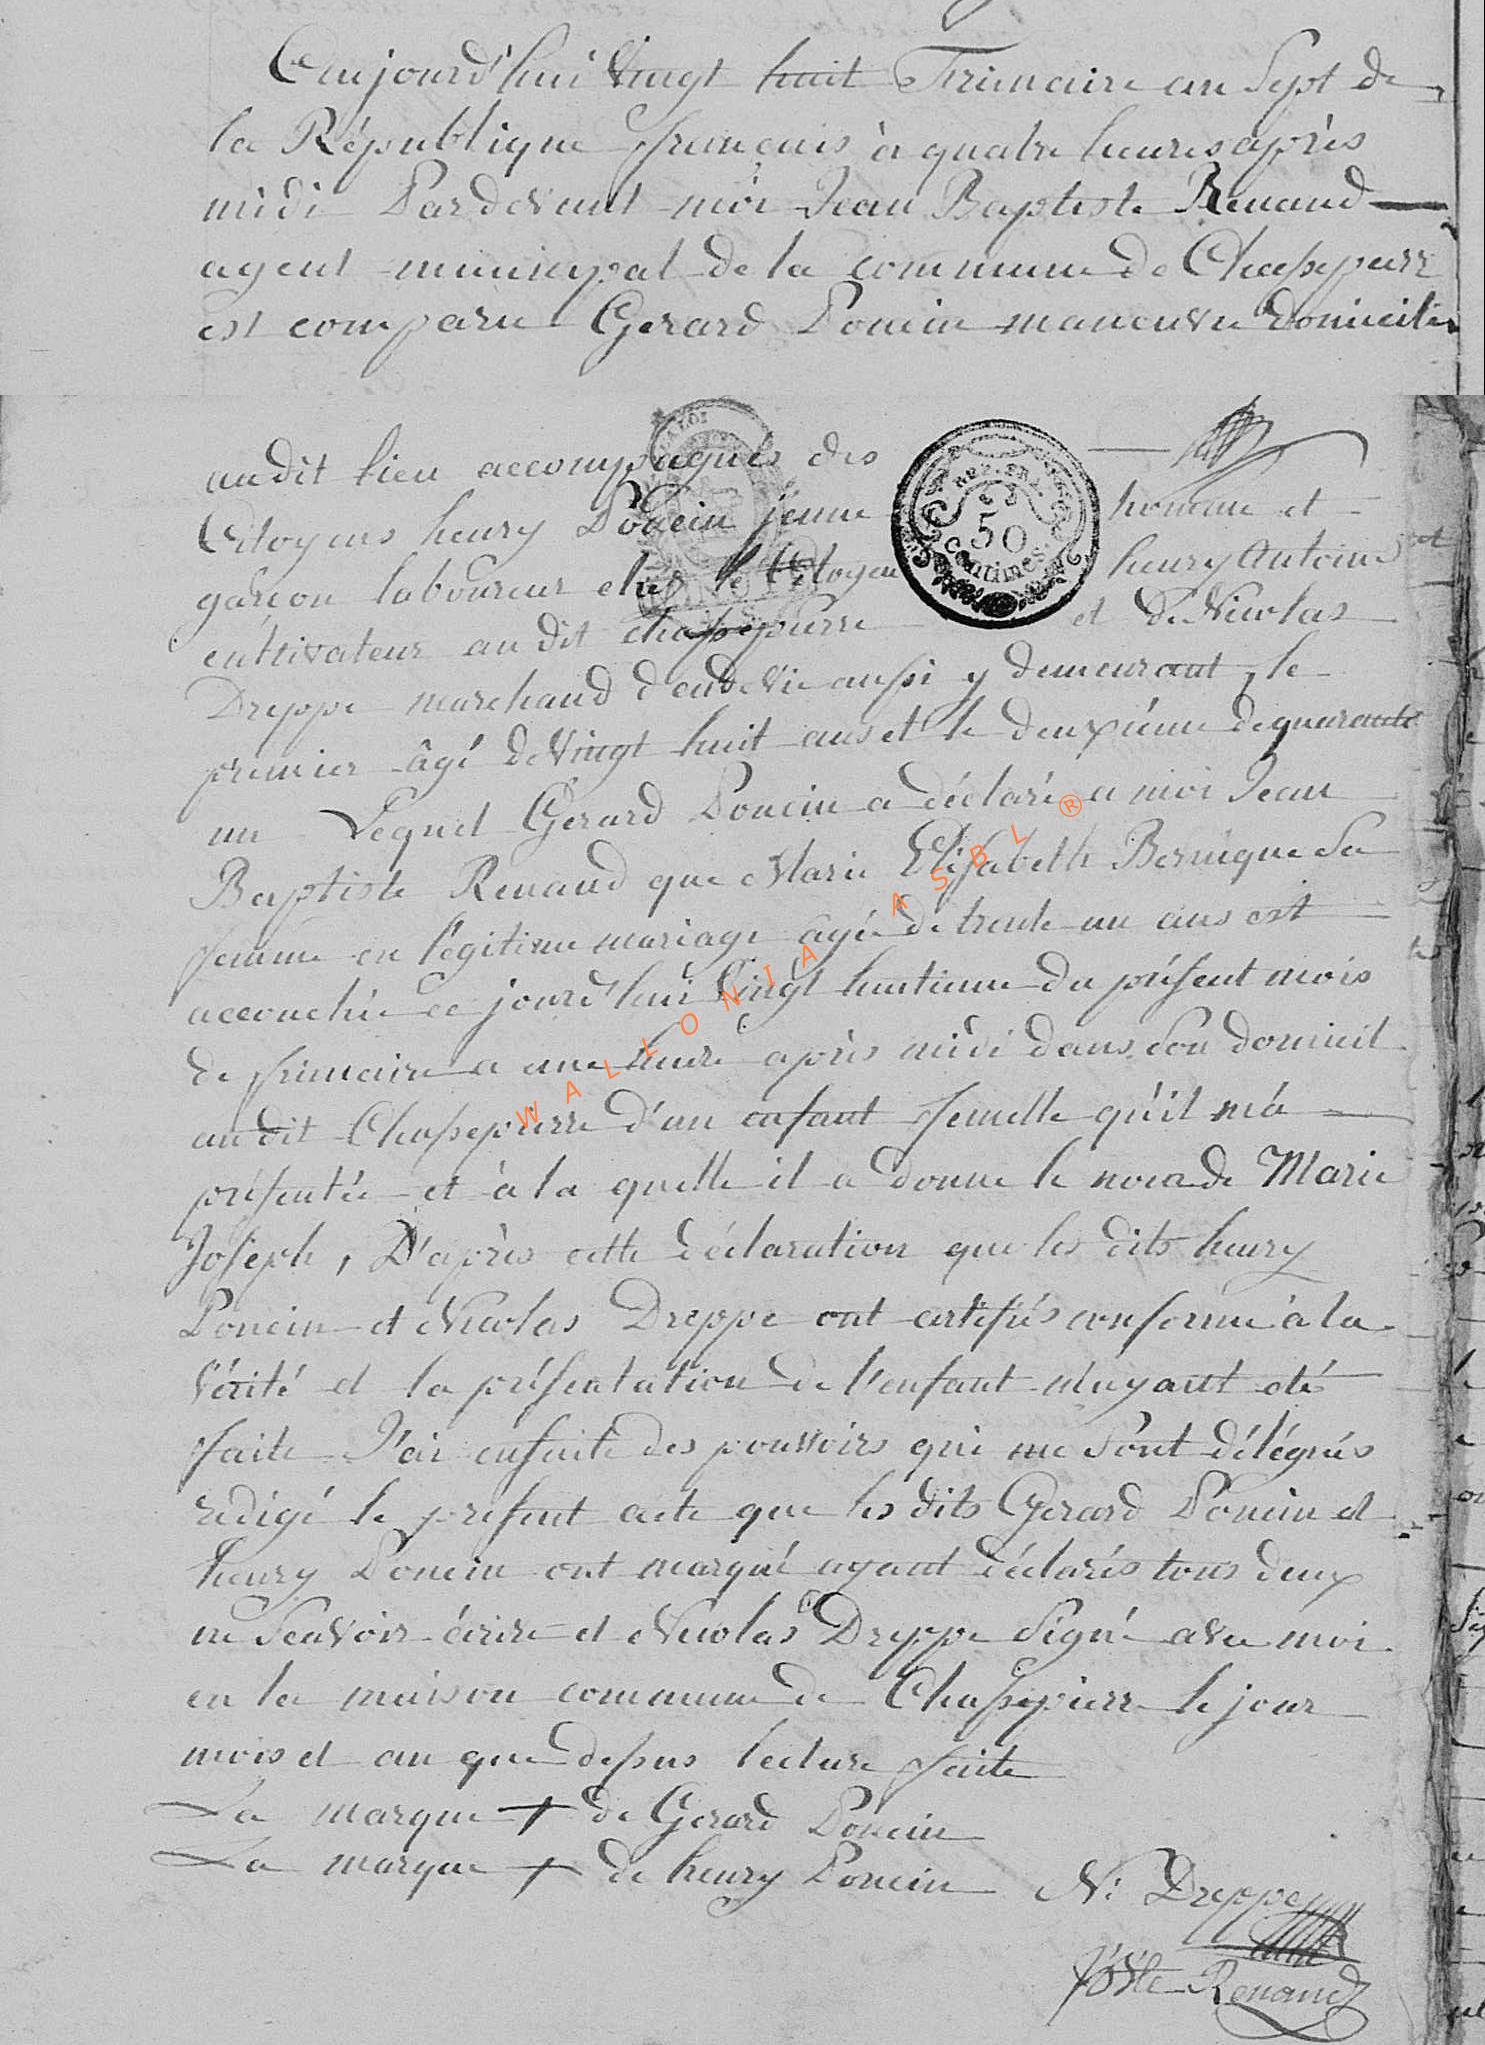 Aujourd'hui Vingt huit Frimaire an Sept de
la République français à quatre heures après
midi Pardevant moi Jean Baptiste Renaud
agent municipal de la commune de Chassepierr
est comparu Gerard Poncin maneuvre domicilié
audit lieu accompagnés des
Citoyens henry Poncin jeune homme et
garcon laboureur chez le Citoyen henry Antoine
cultivateur au dit chassepierre et de Nicolas
Dreppe marchand d'eaudevie aussi y demeurant, le
premier âgé de Vingt huit ans et le deuxième de quarante
un Lequel Gerard Poncin a déclaré a moi Jean
Baptiste Renaud que Marie Elisabeth Bernique Sa
femme en légitime mariage agée de trente un ans est
accouchée ce jourd'hui Vingt huitieme du présent mois
de frimaire a une heure après midi dans Son domicil
audit Chassepierre d'un enfant femelle qu'il m'a
présentée et à la quelle il a donne le nom de Marie
Joseph, D'après cette déclaration que les dits henry
Poncin et Nicolas Dreppe ont certifiés conforme à la
Vérité et la présentation de l'enfant m'ayant été
faite J'ai ensuite des pouvoirs qui me Sont délégués
redigé le present acte que les dits Gerard Poncin et
henry Poncin ont marqué ayant déclarés tous deux
ne Scavoir écrire et Nicolas Dreppe Signé avec moi
en la maison commune de Chassepierr le jour
mois et an que dessus lecture faite
La marque + de Gerard Poncin
La marque + de henry Poncin N: Dreppe
JBte Renaud
REP. FRA.
50
centimes
LA LOI
WALLONIA ASBL ®